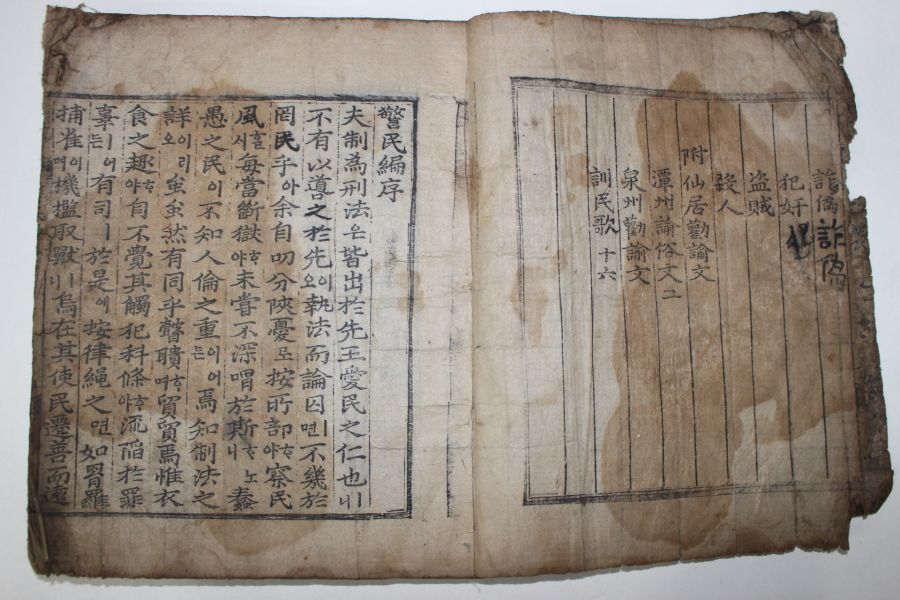 詐僞 詐僞
犯奸
盜賊
殺人
附仙居勸諭文
潭州諭俗文二
泉州勸諭文
訓民歌 十六
警民編序
夫制為刑法은皆出於先王愛民之仁也니
不有以導之於先이오執法而論囚면不幾於
罔民乎아余自叨分陝憂로按所部야察民
風시每當斷獄야未嘗不深喟於斯노니蠢
愚之民이不知人倫之重이어든焉知制法之
詳이리오蚩蚩然有同乎聾聵여貿貿焉惟衣
食之趣야自不覺其觸犯科條야流陷於罪
辜어든有司ㅣ於是에按律繩之면如胃羅
捕雀이며機檻取獸ㅣ니烏在其使民遷善而遠